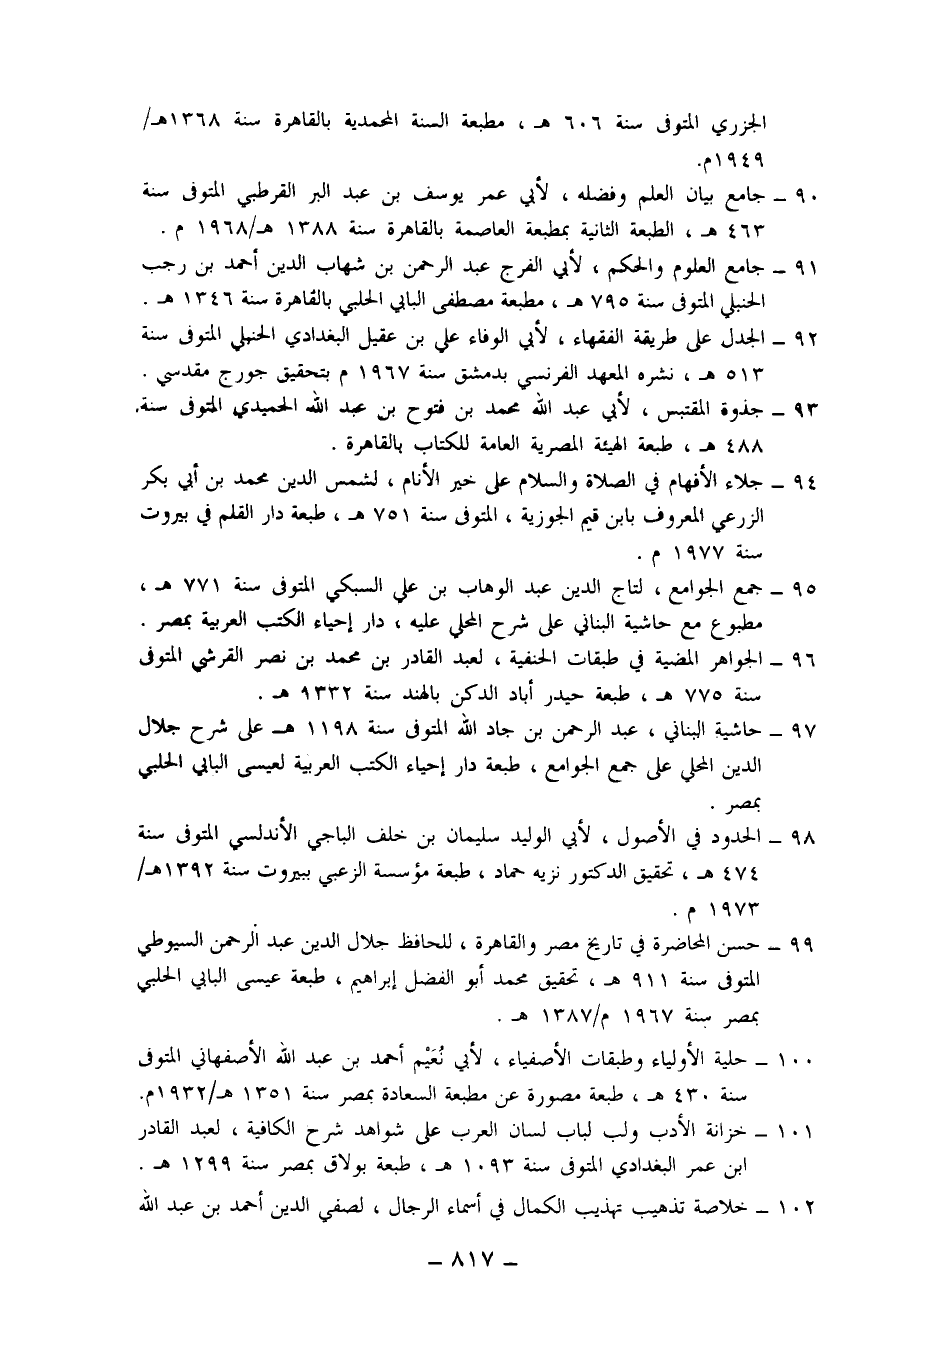 الجزري المتوفى سنة ٦٠٦ هـ ، مطبعة السنة المحمدية بالقاهرة سنة ١٣٦٨هـ/
١٩٤٩م.
٩٠ ـ جامع بيان العلم وفضله ، لأبي عمر يوسف بن عبد البر القرطبي المتوفى سنة
٤٦٣ هـ ، الطبعة الثانية بمطبعة العاصمة بالقاهرة سنة ١٣٨٨ هـ/١٩٦٨ م .
٩١ ـ جامع العلوم والحكم ، لأبي الفرج عبد الرحمن بن شهاب الدين أحمد بن رجب
الحنبلي المتوفى سنة ٧٩٥ هـ ، مطبعة مصطفى البابي الحلبي بالقاهرة سنة ١٣٤٦ هـ .
٩٢ ـ الجدل على طريقة الفقهاء ، لأبي الوفاء علي بن عقيل البغدادي الحنبلي المتوفى سنة
٥١٣ هـ ، نشره المعهد الفرنسي بدمشق سنة ١٩٦٧ م بتحقيق جورج مقدسي .
٩٣ ـ جذوة المقتبس ، لأبي عبد الله محمد بن فتوح بن عبد الله الحميدي المتوفى سنة
٤٨٨ هـ ، طبعة الهيئة المصرية العامة للكتاب بالقاهرة .
٩٤ ـ جلاء الأفهام في الصلاة والسلام على خير الأنام ، لشمس الدين محمد بن أبي بكر
الزرعي المعروف بابن قيم الجوزية ، المتوفى سنة ٧٥١ هـ ، طبعة دار القلم في بيروت
سنة ١٩٧٧ م .
٩٥ ـ جمع الجوامع ، لتاج الدين عبد الوهاب بن علي السبكي المتوفى سنة ٧٧١ هـ ،
مطبوع مع حاشية البناني على شرح المحلي عليه ، دار إحياء الكتب العربية بمصر .
٩٦ ـ الجواهر المضية في طبقات الحنفية ، لعبد القادر بن محمد بن نصر القرشي المتوفى
سنة ٧٧٥ هـ ، طبعة حيدر أباد الدكن بالهند سنة ١٣٣٢ هـ .
٩٧ ـ حاشية البناني ، عبد الرحمن بن جاد الله المتوفى سنة ١١٩٨ هـ على شرح جلال
الدين المحلي على جمع الجوامع ، طبعة دار إحياء الكتب العربية لعيسى البابي الحلبي
بمصر .
٩٨ ـ الحدود في الأصول ، لأبي الوليد سليمان بن خلف الباجي الأندلسي المتوفى سنة
٤٧٤ هـ ، تحقيق الدكتور نزيه حماد ، طبعة مؤسسة الزعبي ببيروت سنة ١٣٩٢هـ/
١٩٧٣ م .
٩٩ ـ حسن المحاضرة في تاريخ مصر والقاهرة ، للحافظ جلال الدين عبد الرحمن السيوطي
المتوفى سنة ٩١١ هـ ، تحقيق محمد أبو الفضل إبراهيم ، طبعة عيسى البابي الحلبي
بمصر سنة ١٩٦٧ م/١٣٨٧ هـ .
١٠٠ ـ حلية الأولياء وطبقات الأصفياء ، لأبي نُعَيْم أحمد بن عبد الله الأصفهاني المتوفى
سنة ٤٣٠ هـ ، طبعة مصورة عن مطبعة السعادة بمصر سنة ١٣٥١ هـ/١٩٣٢م.
١٠١ ـ خزانة الأدب ولب لباب لسان العرب على شواهد شرح الكافية ، لعبد القادر
ابن عمر البغدادي المتوفى سنة ١٠٩٣ هـ ، طبعة بولاق بمصر سنة ١٢٩٩ هـ .
١٠٢ ـ خلاصة تذهيب تهذيب الكمال في أسماء الرجال ، لصفي الدين أحمد بن عبد الله
ـ ٨١٧ ـ